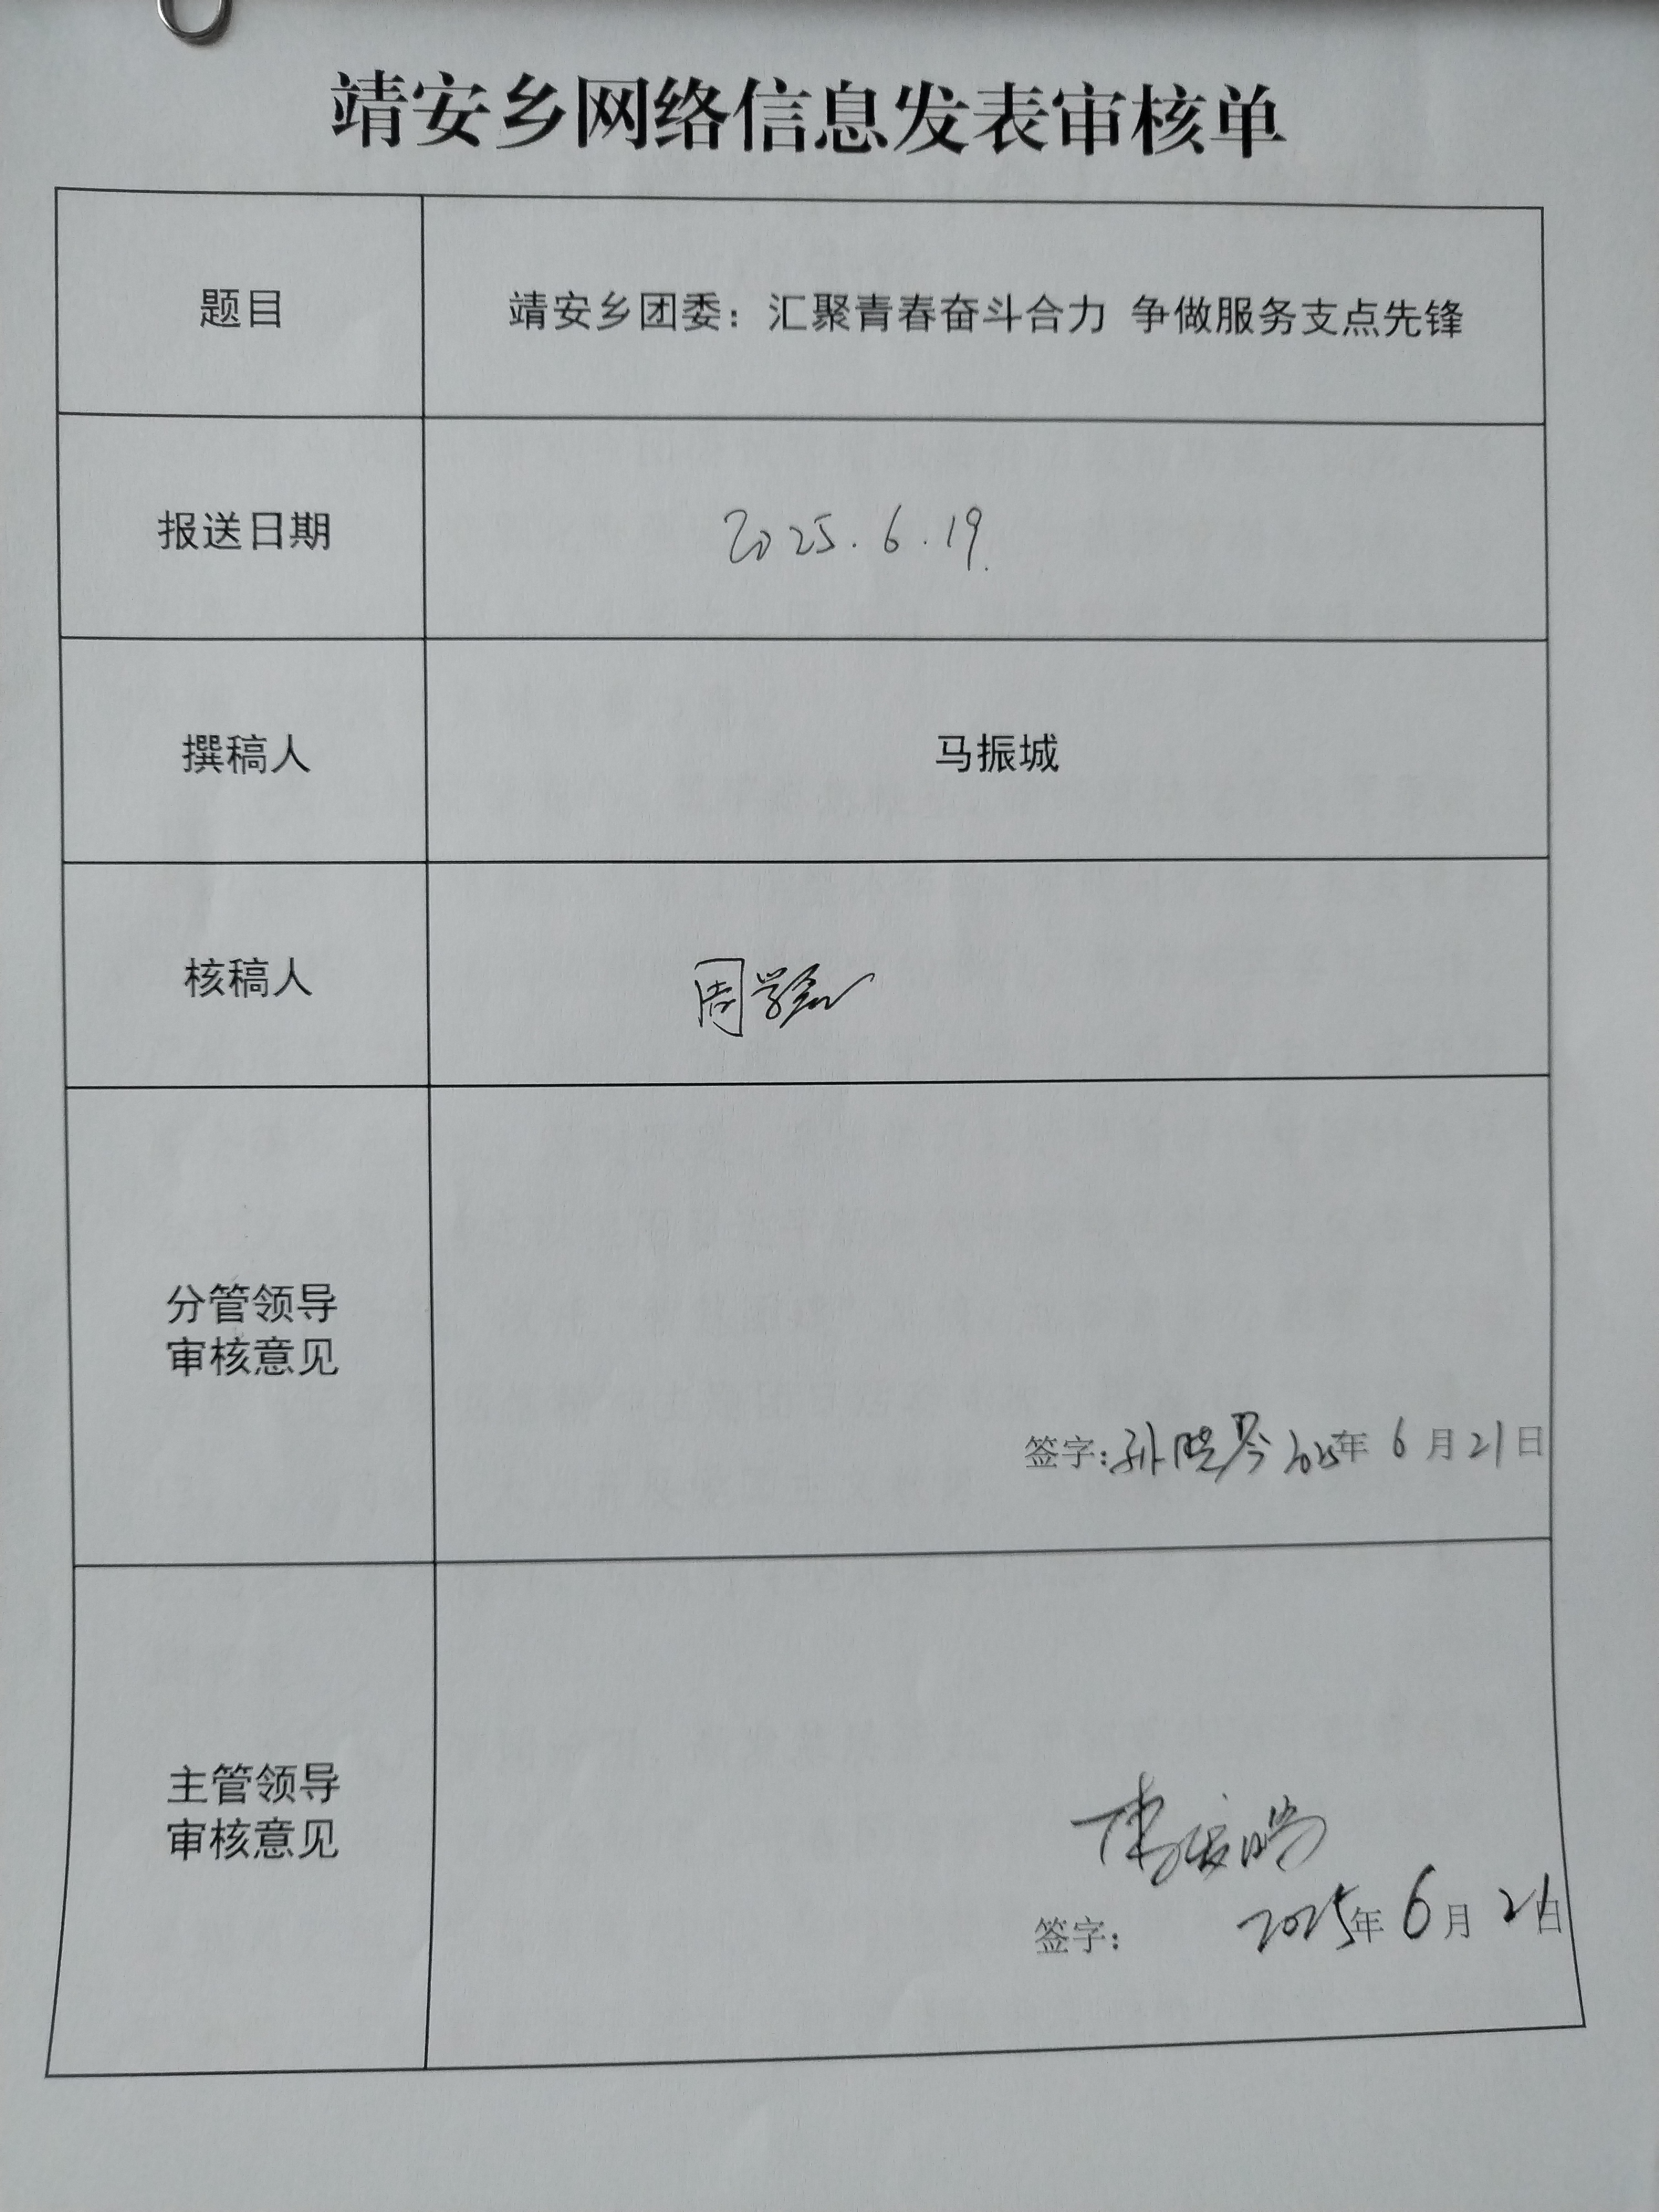 靖安乡网络信息发表审核单
题目
靖安乡团委：汇聚青春奋斗合力 争做服务支点先锋
报送日期
2025.6.19.
撰稿人
马振城
核稿人
周
分管领导
审核意见
签字：孙晓琴 2025年 6 月 21 日
主管领导
审核意见
签字： 2025年 6 月 21日